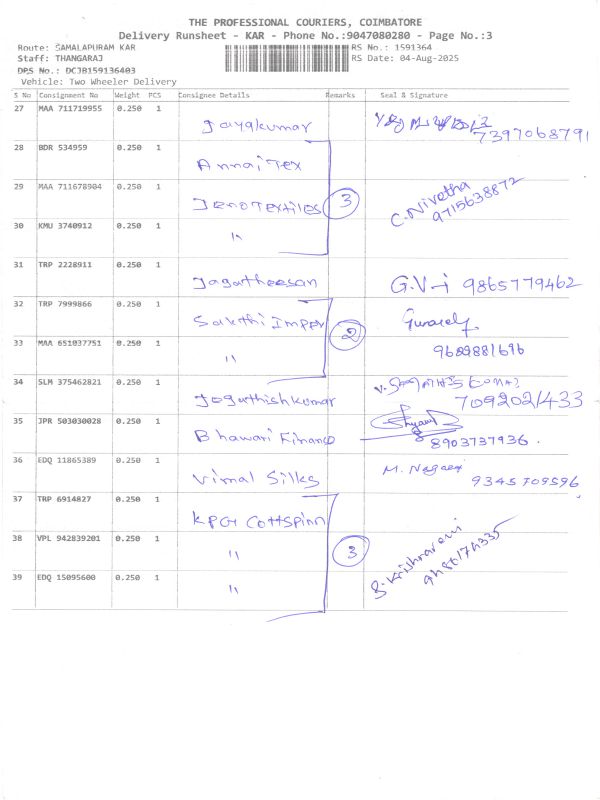 THE PROFESSIONAL COURIERS, COIMBATORE
Delivery Runsheet - KAR - Phone No.:9047080280 - Page No.:3
Route: SAMALAPURAM KAR RS No.: 1591364
Staff: THANGARAJ RS Date: 04-Aug-2025
DPS No.: DCJB159136403
Vehicle: Two Wheeler Delivery
S No Consignment No Weight PCS Consignee Details Remarks Seal & Signature
27 MAA 711719955 0.250 1 Jayakumar 7397068791
28 BDR 534959 0.250 1 Annai Tex
29 MAA 711678904 0.250 1 Jeno Textiles 3 C. Nivetha 9715638872
30 KMU 3740912 0.250 1 "
31 TRP 2228911 0.250 1 Jagatheesan G.V-i 9865779462
32 TRP 7999866 0.250 1 Sakthi Imper 2
33 MAA 651037751 0.250 1 " 9609881696
34 SLM 375462821 0.250 1 Jogathishkumar 7092021433
35 JPR 503030028 0.250 1 Bhawari Finance 8903737936.
36 EDQ 11865389 0.250 1 Vimal Silks M. Nagaeri 9345709596
37 TRP 6914827 0.250 1 KPG Cottspinn
38 VPL 942839201 0.250 1 " 3 S. Krishnaveni
39 EDQ 15095600 0.250 1 "